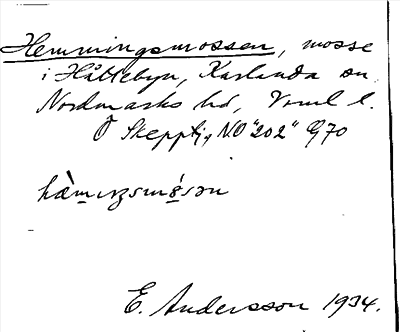 Hemmingsmossen, mosse
i Håltebyn, Karlanda sn,
Nordmarks hd, Vrml l.
Ö Skepptj, NO "202" G70
hàmıŋsmósən
E. Andersson 1934.